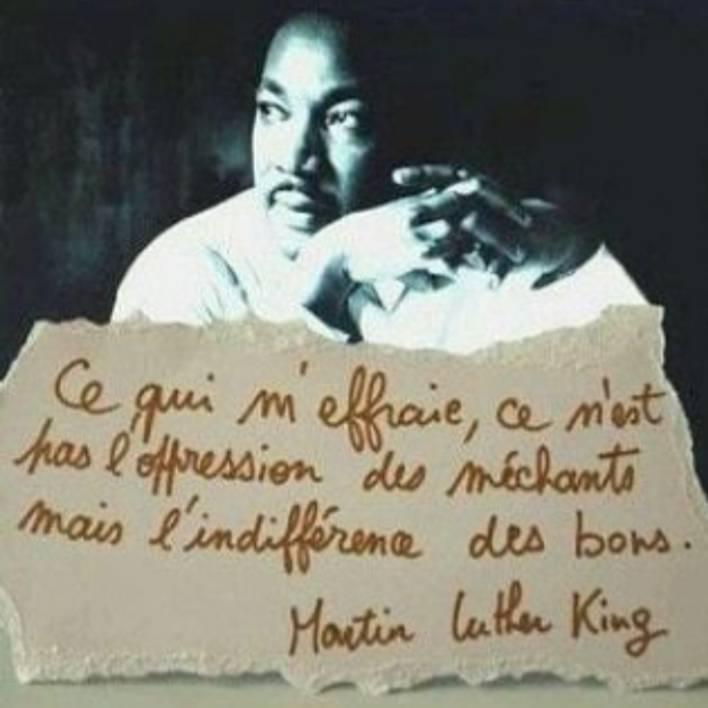 Ce qui m'effraie, ce n'est
pas l'oppression des méchants
mais l'indifférence des bons.
Martin Luther King